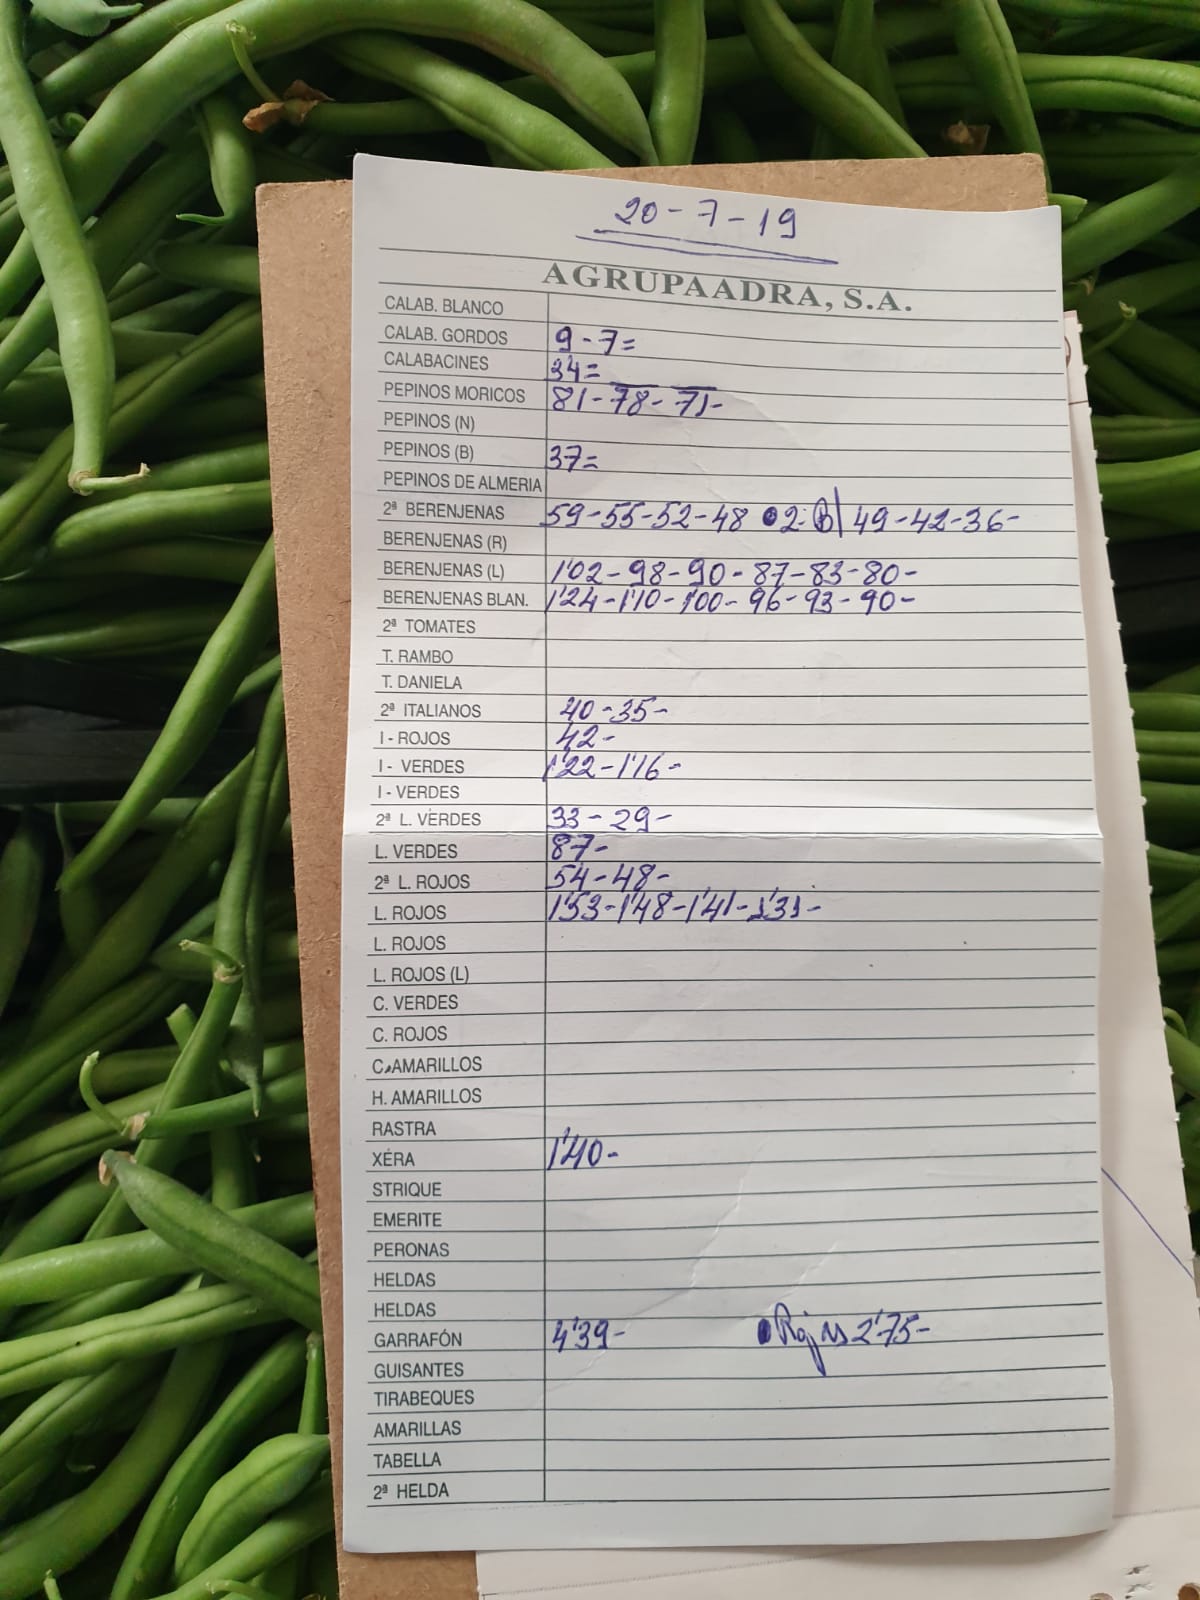 20-7-19
AGRUPAADRA, S.A.
CALAB. BLANCO
CALAB. GORDOS 9-7=
CALABACINES 34=
PEPINOS MORICOS 81-78-71-
PEPINOS (N)
PEPINOS (B) 37=
PEPINOS DE ALMERIA
2ª BERENJENAS 59-55-52-48 •2-B| 49-42-36-
BERENJENAS (R)
BERENJENAS (L) 1'02-98-90-87-83-80-
BERENJENAS BLAN. 1'24-1'10-1'00-96-93-90-
2ª TOMATES
T. RAMBO
T. DANIELA
2ª ITALIANOS 40-35-
I - ROJOS 42-
I - VERDES 1'22-1'16-
I - VERDES
2ª L. VERDES 33-29-
L. VERDES 87-
2ª L. ROJOS 54-48-
L. ROJOS 1'53-1'48-1'41-1'31-
L. ROJOS
L. ROJOS (L)
C. VERDES
C. ROJOS
C. AMARILLOS
H. AMARILLOS
RASTRA
XÉRA 1'40-
STRIQUE
EMERITE
PERONAS
HELDAS
HELDAS
GARRAFÓN 4'39- •Rojas 2'75-
GUISANTES
TIRABEQUES
AMARILLAS
TABELLA
2ª HELDA